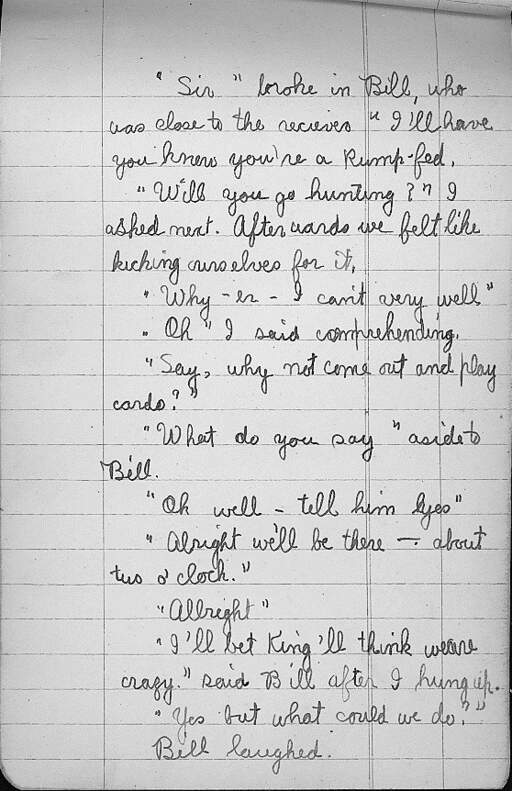 "Sir" broke in Bill, who
was close to the reciever "I'll have
you know you're a Rump-fed.
"Will you go hunting?" I
asked next. Afterwards we felt like
kicking ourselves for it.
"Why - er - I can't very well"
"Oh" I said comprehending.
"Say, why not come out and play
cards?"
"What do you say" aside to
Bill.
"Oh well - tell him yes"
"Alright we'll be there - about
two o'clock."
"Allright"
"I'll bet King'll think we are
crazy." said Bill after I hung up.
"Yes but what could we do?"
Bill laughed.